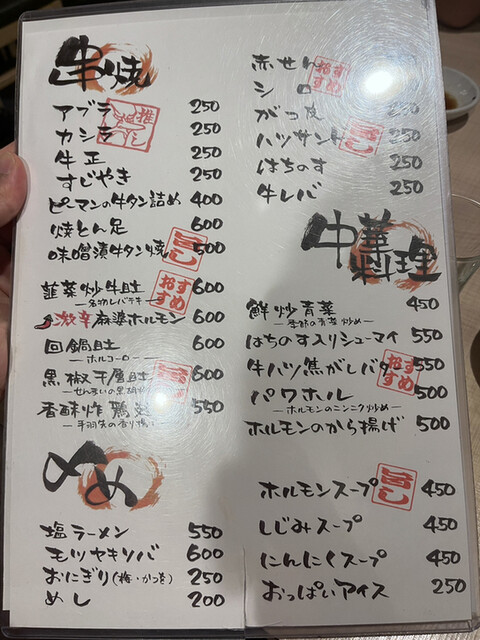 串焼
アブラ 250
カシラ 250
牛正 250
すじやき 250
ピーマンの牛タン詰め 400
焼とん足 600
味噌漬牛タン焼 500
旨し
韮菜炒牛肚 600
―名物レバテキ―
おすすめ
激辛麻婆ホルモン 600
回鍋肚 600
―ホルコーロー―
黒椒千層肚 600
―せんまいの黒胡
旨し
香酥炸鶏 550
―手羽先の香り揚
〆め
塩ラーメン 550
モツヤキソバ 600
おにぎり(梅・かつを) 250
めし 200
赤せん
おすすめ
シロ
ガツ 250
ハツサン 250
旨し
はちのす 250
牛レバ 250
中華料理
鮮炒青菜 450
―季節の青菜炒め―
はちのす入りシューマイ 550
牛ハツ焦がしバタ 550
おすすめ
パワホル 500
―ホルモンのニンニク炒め―
ホルモンのから揚げ 500
旨し
ホルモンスープ 450
しじみスープ 450
にんにくスープ 450
おっぱいアイス 250